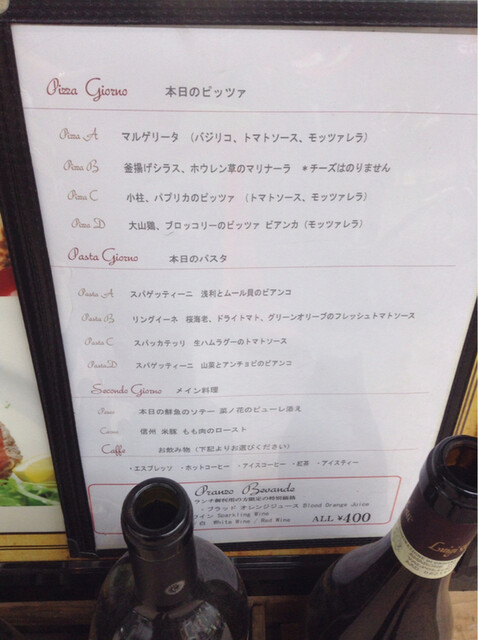 Pizza Giorno 本日のピッツァ
Pizza A マルゲリータ （バジリコ、トマトソース、モッツァレラ）
Pizza B 釜揚げシラス、ホウレン草のマリナーラ ＊チーズはのりません
Pizza C 小柱、パプリカのピッツァ （トマトソース、モッツァレラ）
Pizza D 大山鶏、ブロッコリーのピッツァ ビアンカ（モッツァレラ）
Pasta Giorno 本日のパスタ
Pasta A スパゲッティーニ 浅利とムール貝のビアンコ
Pasta B リングイーネ 桜海老、ドライトマト、グリーンオリーブのフレッシュトマトソース
Pasta C スパッカテッリ 生ハムラグーのトマトソース
Pasta D スパゲッティーニ 山菜とアンチョビのビアンコ
Secondo Giorno メイン料理
Pesce 本日の鮮魚のソテー 菜ノ花のピューレ添え
Carne 信州 米豚 もも肉のロースト
Caffe お飲み物（下記よりお選びください）
・エスプレッソ ・ホットコーヒー ・アイスコーヒー ・紅茶 ・アイスティー
Pranzo Bevande
ランチ御利用のお客様の特別価格
・ブラッド オレンジジュース Blood Orange Juice
イン Sparkling Wine
白 White Wine / Red Wine ALL ¥400